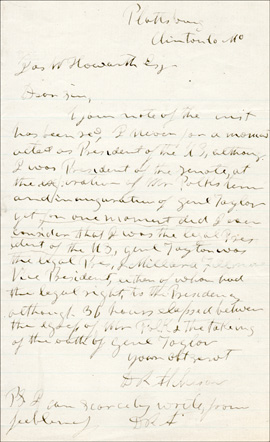 Plattsburg
Clinton Co Mo
Jas W Howarth Esq
Dear sir,
Your note of the inst
has been recd, I never for a moment
acted as President of the U S, although
I was President of the Senate, at
the expiration of Mr Polk's term
and inauguration of Genl Taylor
yet for one moment did I ever
consider that I was the legal Pres
ident of the U S, Genl Taylor was
the legal Pres, & Millard Fillmore
Vice President, either of whom had
the legal right, to the Presidency
although 36 hours elapsed between
the of Mr Polk & the taking
of the oath of Genl Taylor
Your obt svt
D R Atchison
PS I can scarcely write, from
feebleness D R A